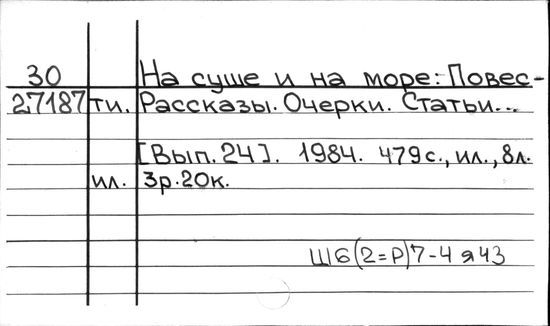 30 На суше и на море: Повес-
27187 ти. Рассказы. Очерки. Статьи...
[Вып. 24]. 1984. 479 с., ил., 8л.
ил. 3р. 20к.
Ш6(2=Р)7-4я43